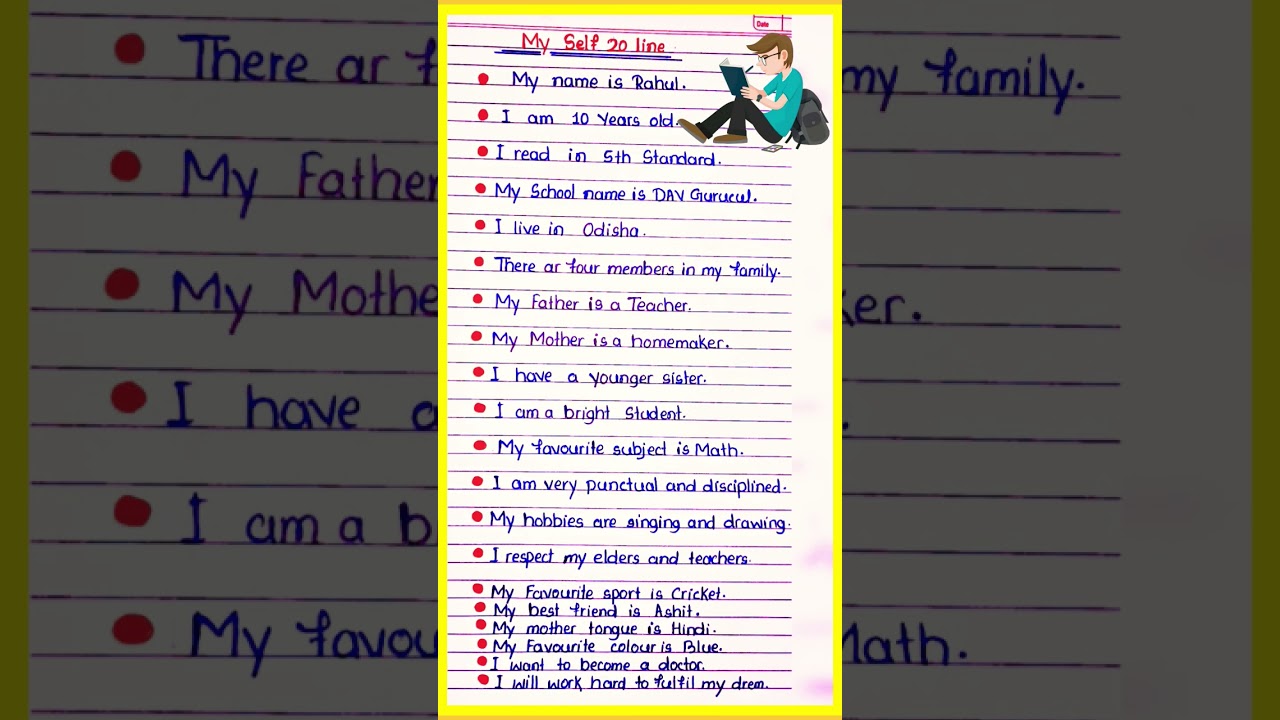 Date
My Self 20 line
My name is Rahul.
I am 10 Years old.
I read in 5th Standard.
My School name is DAV Gurucul.
I live in Odisha.
There ar four members in my family.
My Father is a Teacher.
My Mother is a homemaker.
I have a younger sister.
I am a bright Student.
My favourite subject is Math.
I am very punctual and disciplined.
My hobbies are singing and drawing.
I respect my elders and teachers.
My Favourite sport is Cricket.
My best friend is Ashit.
My mother tongue is Hindi.
My Favourite colour is Blue.
I want to become a doctor.
I will work hard to fulfil my drem.
There ar f
my family.
My Father
My Mothe
ker.
I have a
I am a b
My favou
Math.